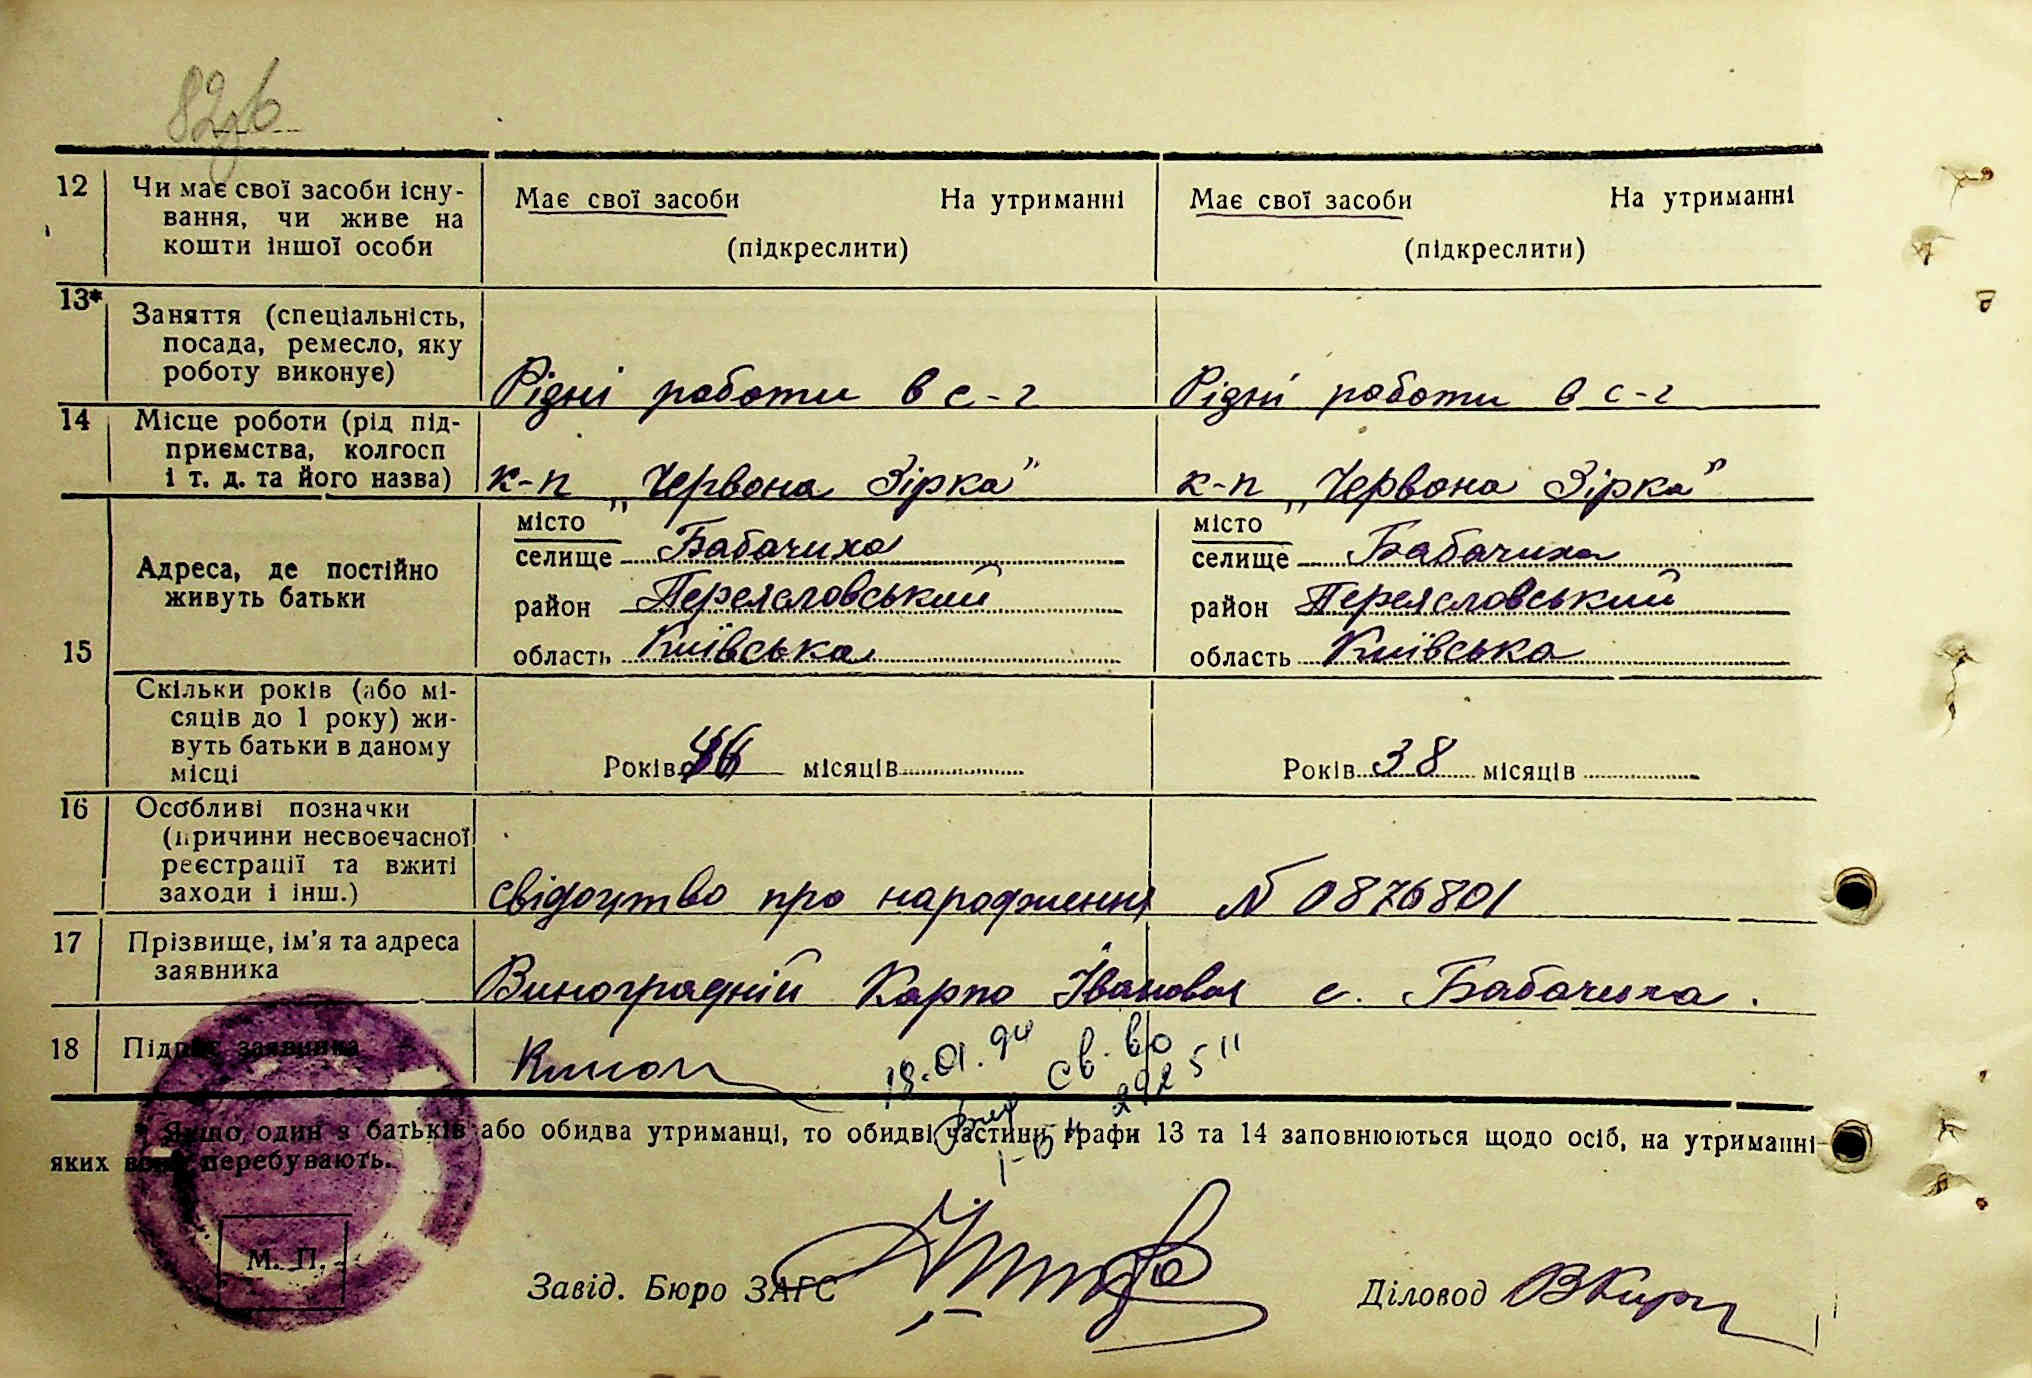 82зв
12 Чи має свої засоби існу-
вання, чи живе на
кошти іншої особи
Має свої засоби На утриманні
(підкреслити)
Має свої засоби На утриманні
(підкреслити)
13* Заняття (спеціальність,
посада, ремесло, яку
роботу виконує)
Рідні роботи в с-г
Рідні роботи в с-г
14 Місце роботи (рід під-
приємства, колгосп
і т. д. та його назва)
к-п „Червона Зірка"
к-п „Червона Зірка"
15 Адреса, де постійно
живуть батьки
місто
селище Бабачиха
район Переясловський
область Київська
місто
селище Бабачиха
район Переясловський
область Київська
Скільки років (або мі-
сяців до 1 року) жи-
вуть батьки в даному
місці
Років 46 місяців
Років 38 місяців
16 Особливі позначки
(причини несвоєчасної
реєстрації та вжиті
заходи і інш.)
свідоцтво про народження № 0876801
17 Прізвище, ім'я та адреса
заявника
Виноградній Карпо Іванович с. Бабачиха.
18 Підпис заявника
18.01.94 св. во
292511
* Якщо один з батьків або обидва утриманці, то обидві частини графи 13 та 14 заповнюються щодо осіб, на утриманні
яких вони перебувають.
М. П.
Завід. Бюро ЗАГС
Діловод